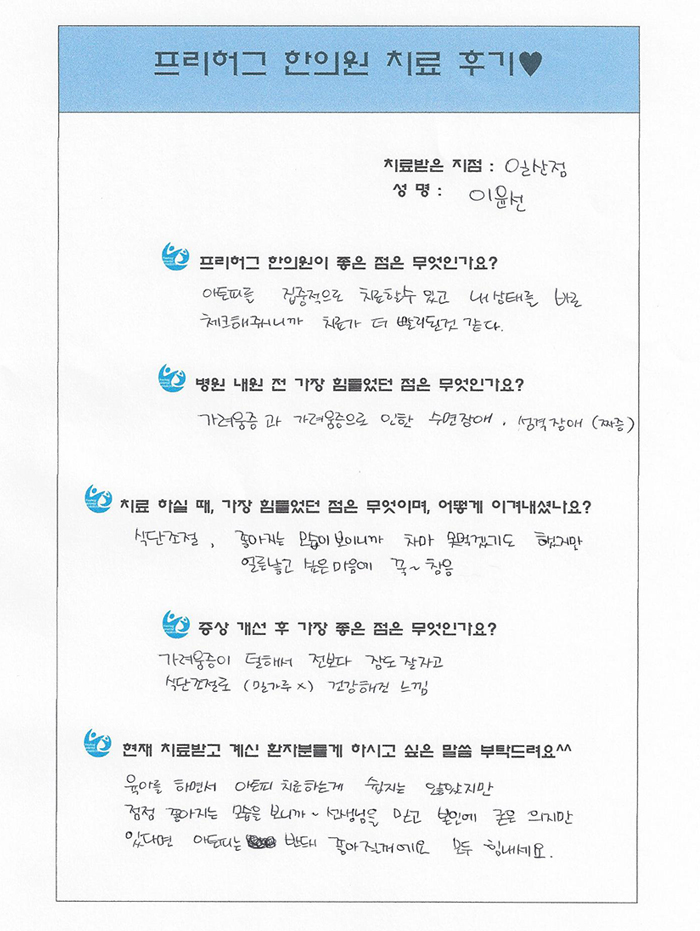 프리허그 한의원 치료 후기♥
치료받은 지점 : 일산점
성 명 : 이윤선
프리허그 한의원이 좋은 점은 무엇인가요?
아토피를 집중적으로 치료할수 있고 내상태를 바로
체크해주시니까 치료가 더 빨리된것 같다.
병원 내원 전 가장 힘들었던 점은 무엇인가요?
가려움증과 가려움증으로 인한 수면장애, 성격장애 (짜증)
치료 하실 때, 가장 힘들었던 점은 무엇이며, 어떻게 이겨내셨나요?
식단조절, 좋아지는 모습이보이니까 차마 못먹겠기도 했지만
얼른낳고 싶은마음에 꾹~ 참음
증상 개선 후 가장 좋은 점은 무엇인가요?
가려움증이 덜해서 전보다 잠도잘자고
식단조절로 (밀가루×) 건강해진 느낌
현재 치료받고 계신 환자분들게 하시고 싶은 말씀 부탁드려요^^
육아를 하면서 아토피 치료하는게 쉽지는 않았지만
점점 좋아지는 모습을 보니까~ 선생님을 믿고 본인에 굳은 의지만
있다면 아토피는 반대 좋아질꺼에요 모두 힘내세요.